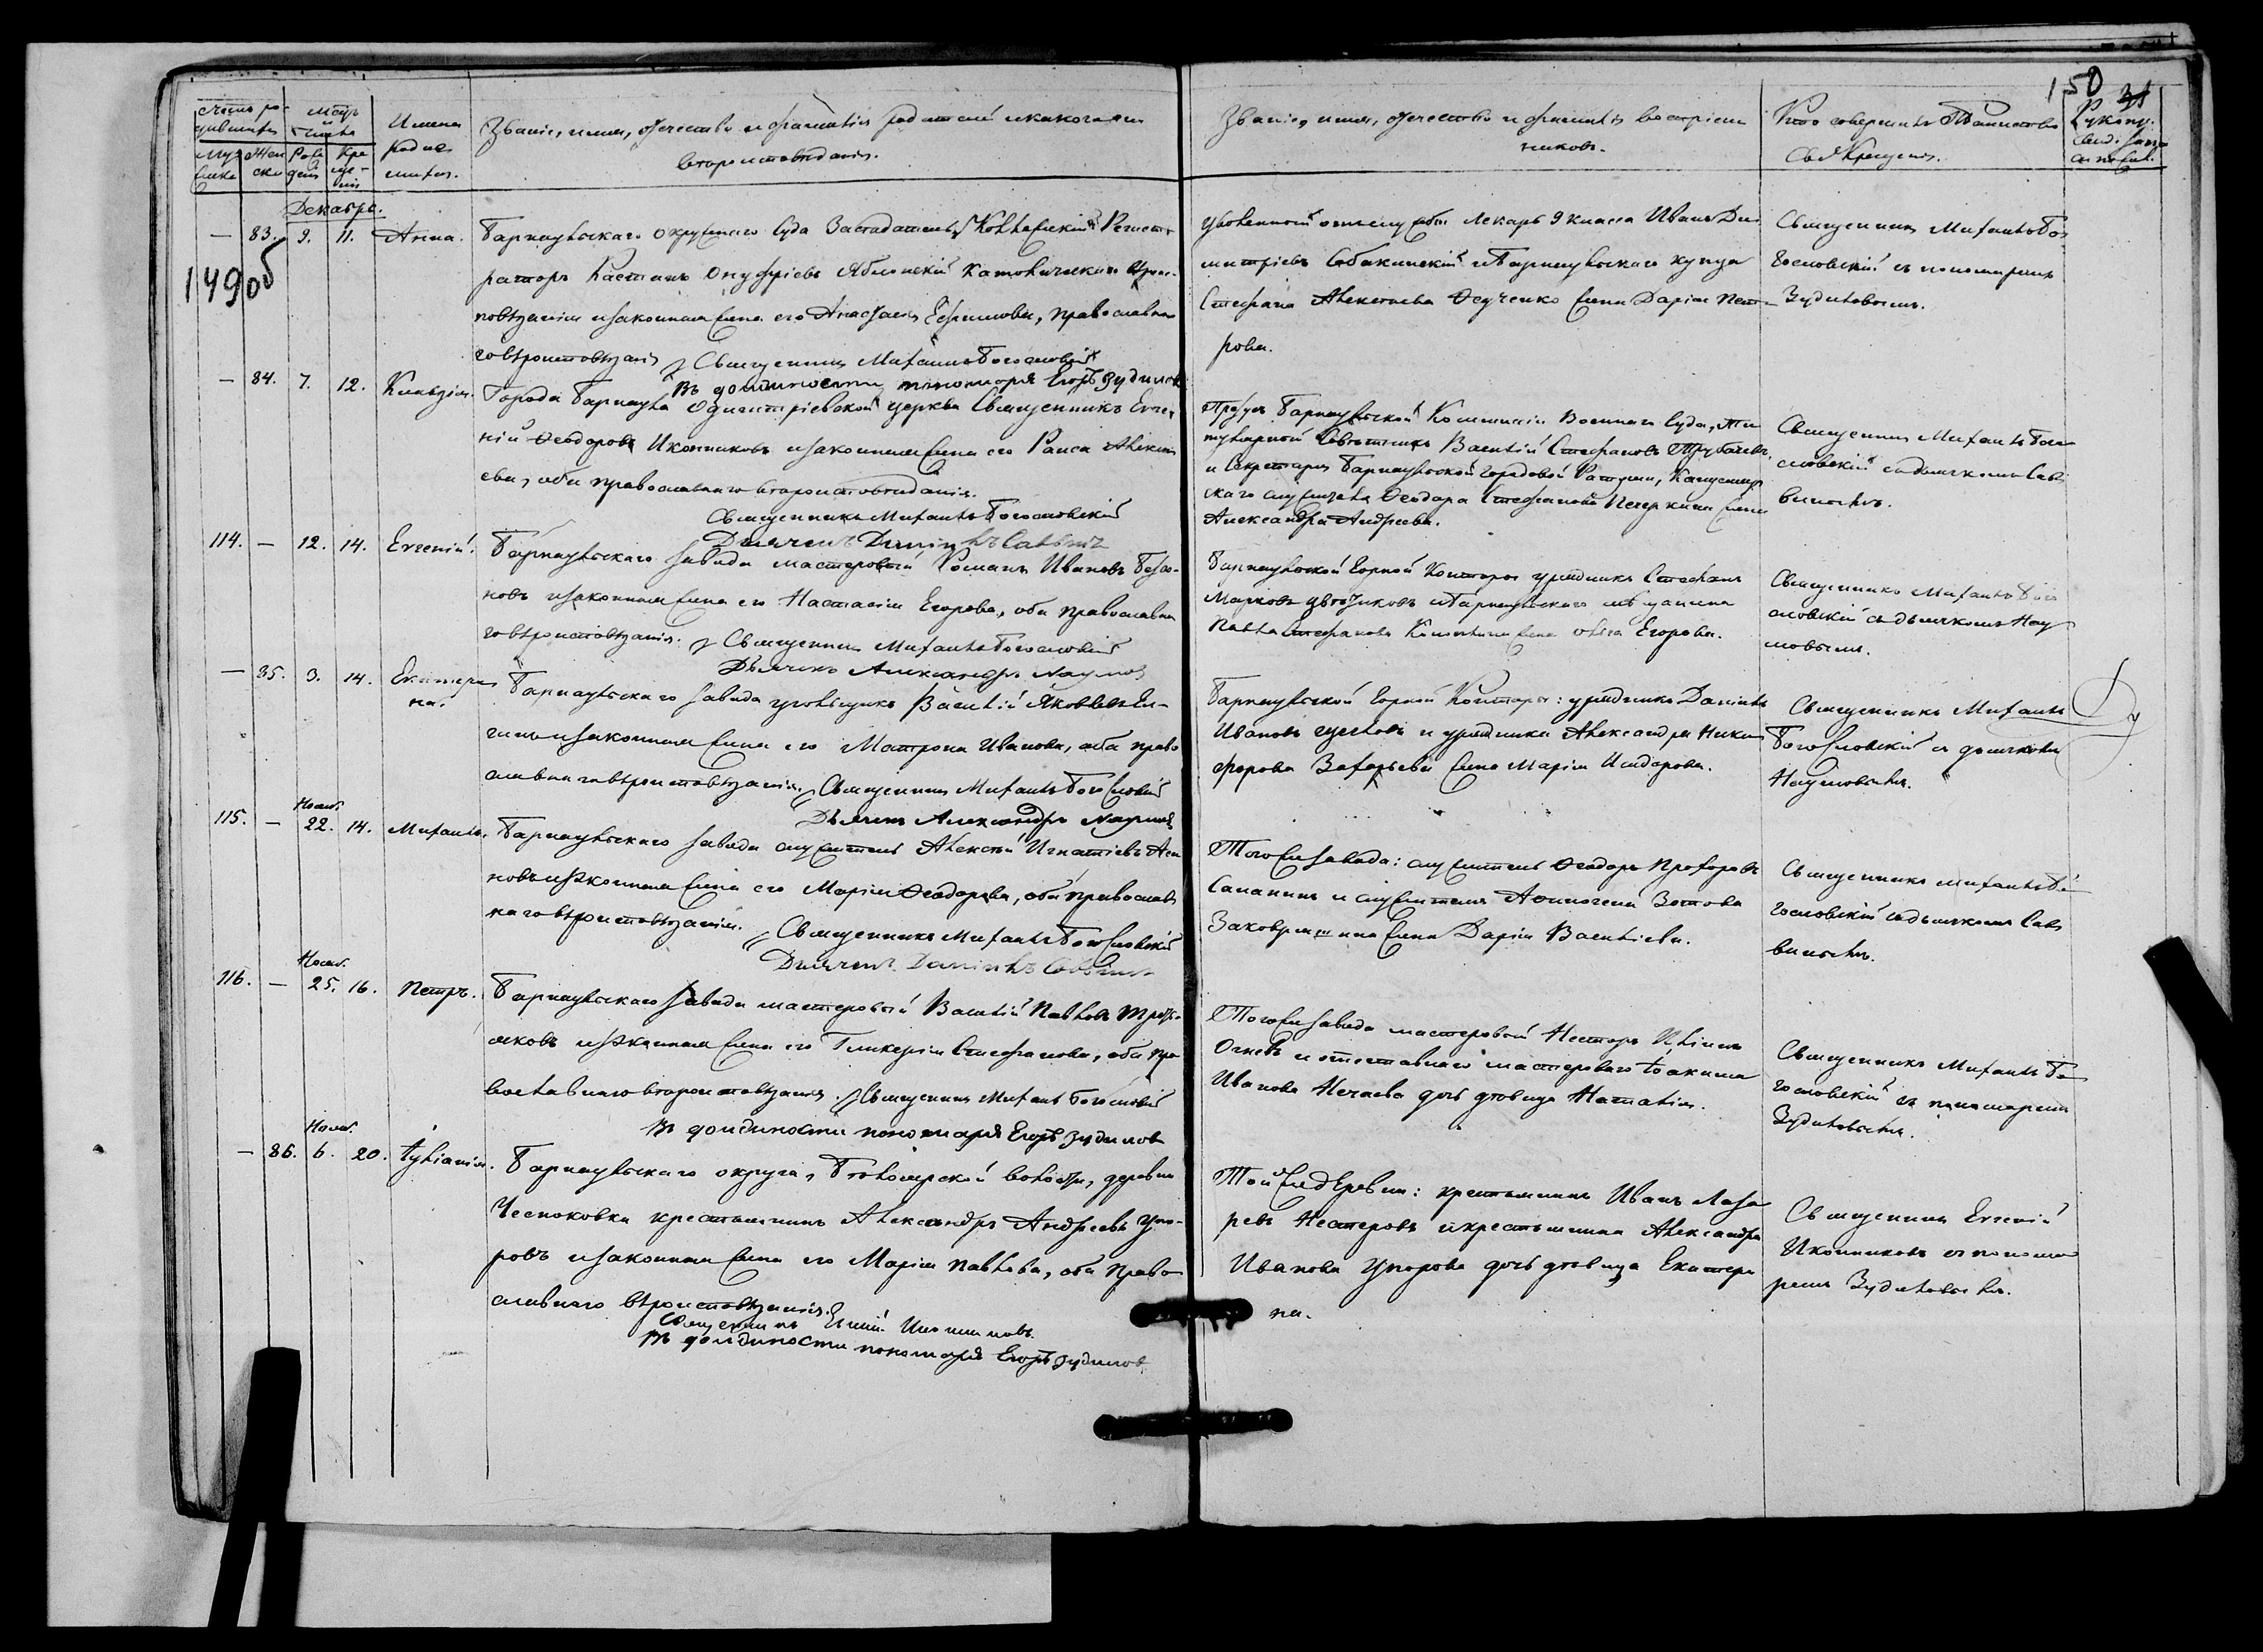 150
31
Счетъ ро-
дившихся
Мѣсяцъ
и
числа
Имена
родив
шихся.
Званіе, имя, отчество и фамилія родителей и какого они
вѣроисповѣданія.
Муж
Жен
ска
Рож
денія
Кре
ще-
нія
Званіе, имя, отчество и фамилія воспріем
никовъ.
Кто совершилъ Таинство
Св. Крещенія.
Декабрь.
— 83. 9. 11. Анна.
149об
Барнаульскаго окружнаго Суда Засѣдатель, Коллежскій Регист
раторъ Кастанъ Онуфріевъ Яблонскій Католическаго вѣрои-
повѣданія и законная жена его Анастасія Ефимова, православна
го вѣроисповѣданія Священникъ Михаилъ Богословскій
Въ должности пономаря Егоръ Зудиловъ
Уволенной отъ службы Лекарь 9 класса Иванъ Ди
митріевъ Собакинскій и Барнаульскаго купца
Стефана Алексѣева Федченко жена Дарія Пет
рова.
Священникъ Михаилъ Бо
гословскій съ пономаремъ
Зудиловымъ.
— 84. 7. 12. Клавдія.
Города Барнаула Одигитріевской церкви Священникъ Евге
ній Ѳеодоровъ Иконниковъ и законная жена его Раиса Алексѣ
ева, оба православнаго вѣроисповѣданія.
Священникъ Михаилъ Богословскій
Дьячекъ Даніилъ Саввинъ
Барнаульской Коммиссіи Военнаго Суда, Ти
тулярной Совѣтникъ Василій Стефановъ Трубачевъ
и Секретаря Барнаульской Городовой Ратуши, Канцеляр
скаго служителя Ѳеодора Стефанова Пегеркина жена
Александра Андреева.
Священникъ Михаилъ Бого
словскій съ дьячкомъ Сав
винымъ.
114. — 12. 14. Евгеній.
Барнаульскаго завода мастеровый Романъ Ивановъ Безсо-
новъ и законная жена его Настасія Егорова, оба православна
го вѣроисповѣданія. Священникъ Михаилъ Богословскій
Дьячекъ Александръ Наумовъ
Барнаульской Горной Конторы урядникъ Стефанъ
Марковъ и Барнаульскаго мѣщанина
Павла Стефанова жена Ольга Егорова.
Священникъ Михаилъ Бого
словскій съ дьячкомъ Нау
мовымъ.
— 85. 3. 14. Екатери
на.
Барнаульскаго завода угольщикъ Василій Яковлевъ Ел-
гинъ и законная жена его Матрона Иванова, оба право
славнаго вѣроисповѣданія. Священникъ Михаилъ Богословскій
Дьячекъ Александръ Наумовъ
Барнаульской Горной Конторы: урядникъ Даніилъ
Ивановъ Гуляевъ и урядника Александра Ники
форова Захарьева жена Марія Исидорова.
Священникъ Михаилъ
Богословскій съ дьячкомъ
Наумовымъ.
Нояб.
115. — 22. 14. Михаилъ.
Барнаульскаго завода служитель Алексѣй Игнатіевъ Аса
новъ и законная жена его Марія Ѳеодорова, оба православ
наго вѣроисповѣданія. Священникъ Михаилъ Богословскій
Дьячекъ Даніилъ Саввинъ
Того же завода: служитель Ѳеодоръ Прохоровъ
Сапанинъ и служителя Аѳиногена Зотова
Заковряшина жена Дарія Васильева.
Священникъ Михаилъ Бо
гословскій съ дьячкомъ Сав
винымъ.
Нояб.
116. — 25. 16. Петръ.
Барнаульскаго завода мастеровый Василій Павловъ Трофи-
мковъ и законная жена его Гликерія Стефанова, оба пра
вославнаго вѣроисповѣданія. Священникъ Михаилъ Богословскій
Въ должности пономаря Егоръ Зудиловъ
Того же завода мастеровой Несторъ Ильинъ
Огневъ и отставнаго мастероваго Іоакима
Иванова Нечаева дочь дѣвица Наталія.
Священникъ Михаилъ Бо
гословскій съ пономаремъ
Зудиловымъ.
Нояб.
— 86. 6. 20. Іуліанія.
Барнаульскаго округа, Бѣлоярской волости, деревни
Чесноковки крестьянинъ Александръ Андреевъ Упо-
ровъ и законная жена его Марія Павлова, оба право
славнаго вѣроисповѣданія.
Священникъ Евгеній Иконниковъ.
Въ должности пономаря Егоръ Зудиловъ
Той же деревни: крестьянинъ Иванъ Лаза
ревъ Нестеровъ и крестьянина Александра
Иванова Упорова дочь дѣвица Екатери
на.
Священникъ Евгеній
Иконниковъ съ понома
ремъ Зудиловымъ.